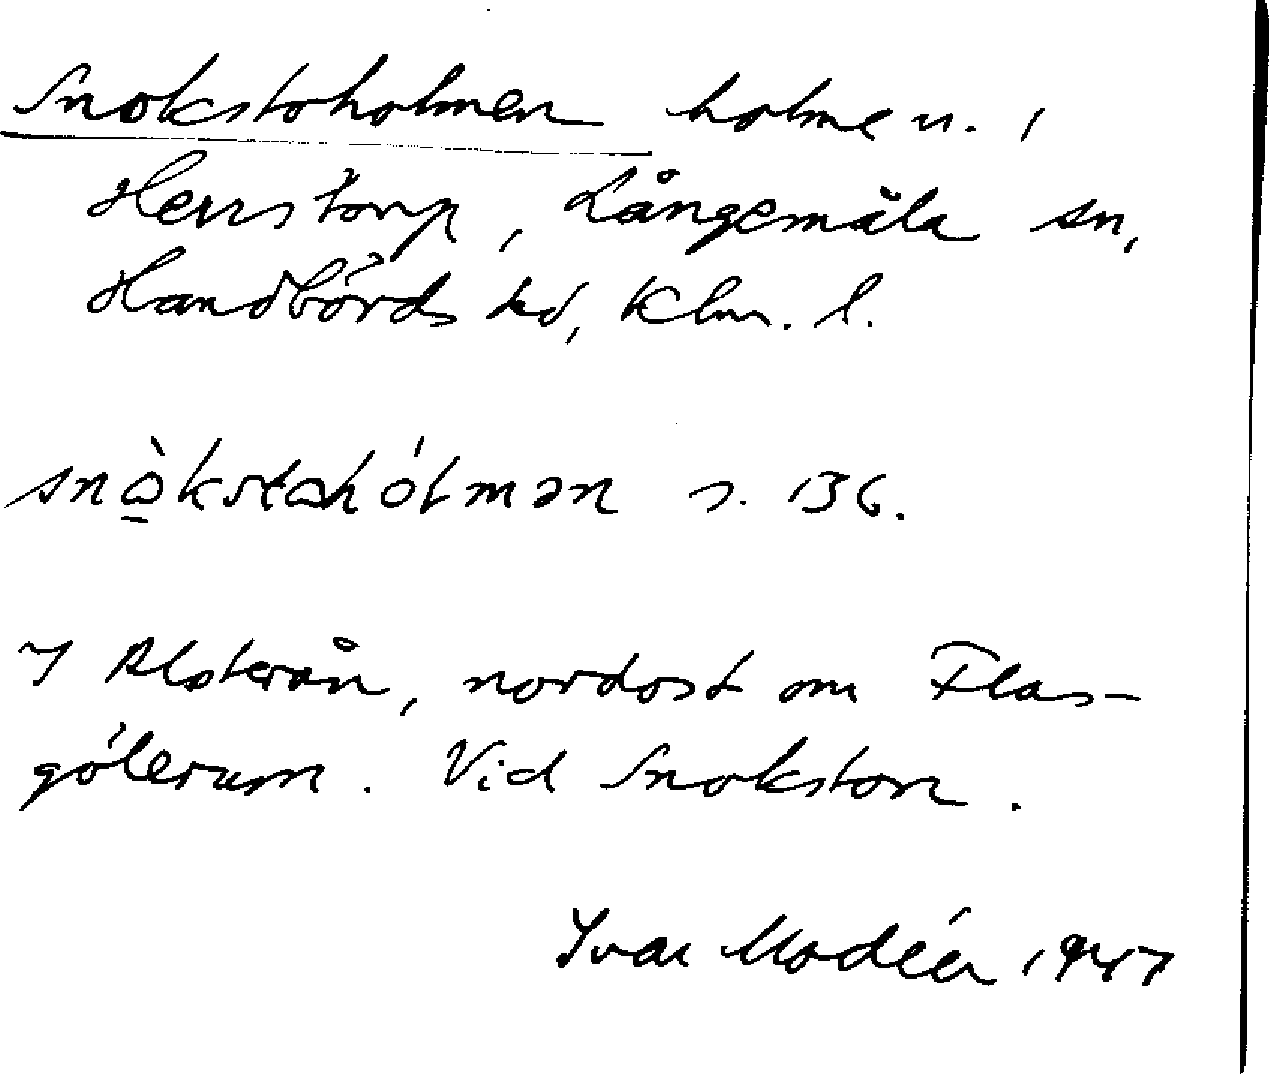 Snokstoholmen holme n. i
Herrstorp, Långemåla sn,
Handbörds hd, Klm. l.
snò̲kstahólmən s. 136.
I Alsterån, nordost om Flas-
gölerum. Vid Snokston.
Ivar Modéer 1947